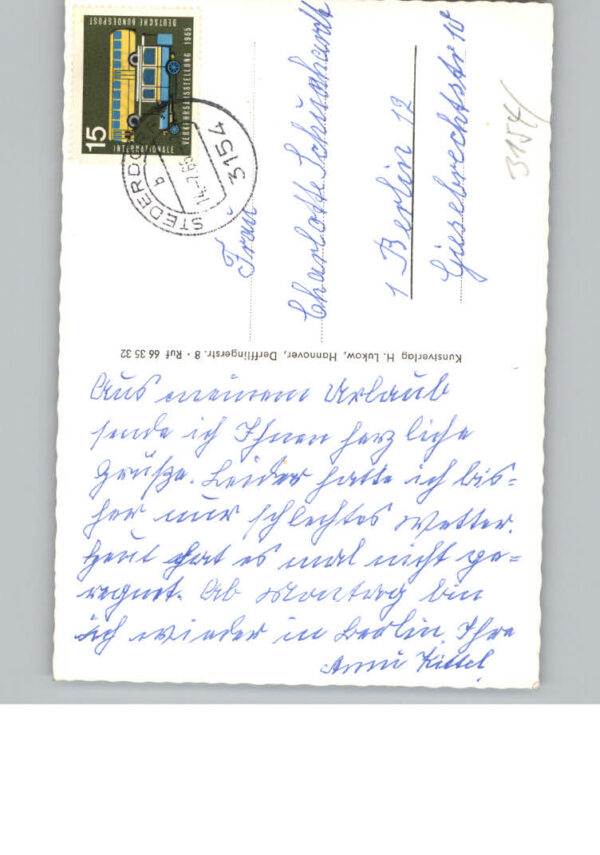 Aus meinem Urlaub
sende ich Ihnen herzliche
Grüße. Leider hatte ich bis=
her nur schlechtes Wetter.
Heut hat es mal nicht ge=
regnet. Ab Montag bin
ich wieder in Berlin. Ihre
Anni Kittel
Frau
Charlotte Schuchardt
1 Berlin 12
Giesebrechtstr 10
3154/
Kunstverlag H. Lukow, Hannover, Derfflingerstr. 8 · Ruf 66 35 32
DEUTSCHE BUNDESPOST
INTERNATIONALE
VERKEHRSAUSSTELLUNG 1965
15
3154 STEDERDORF
b
14.-7.65